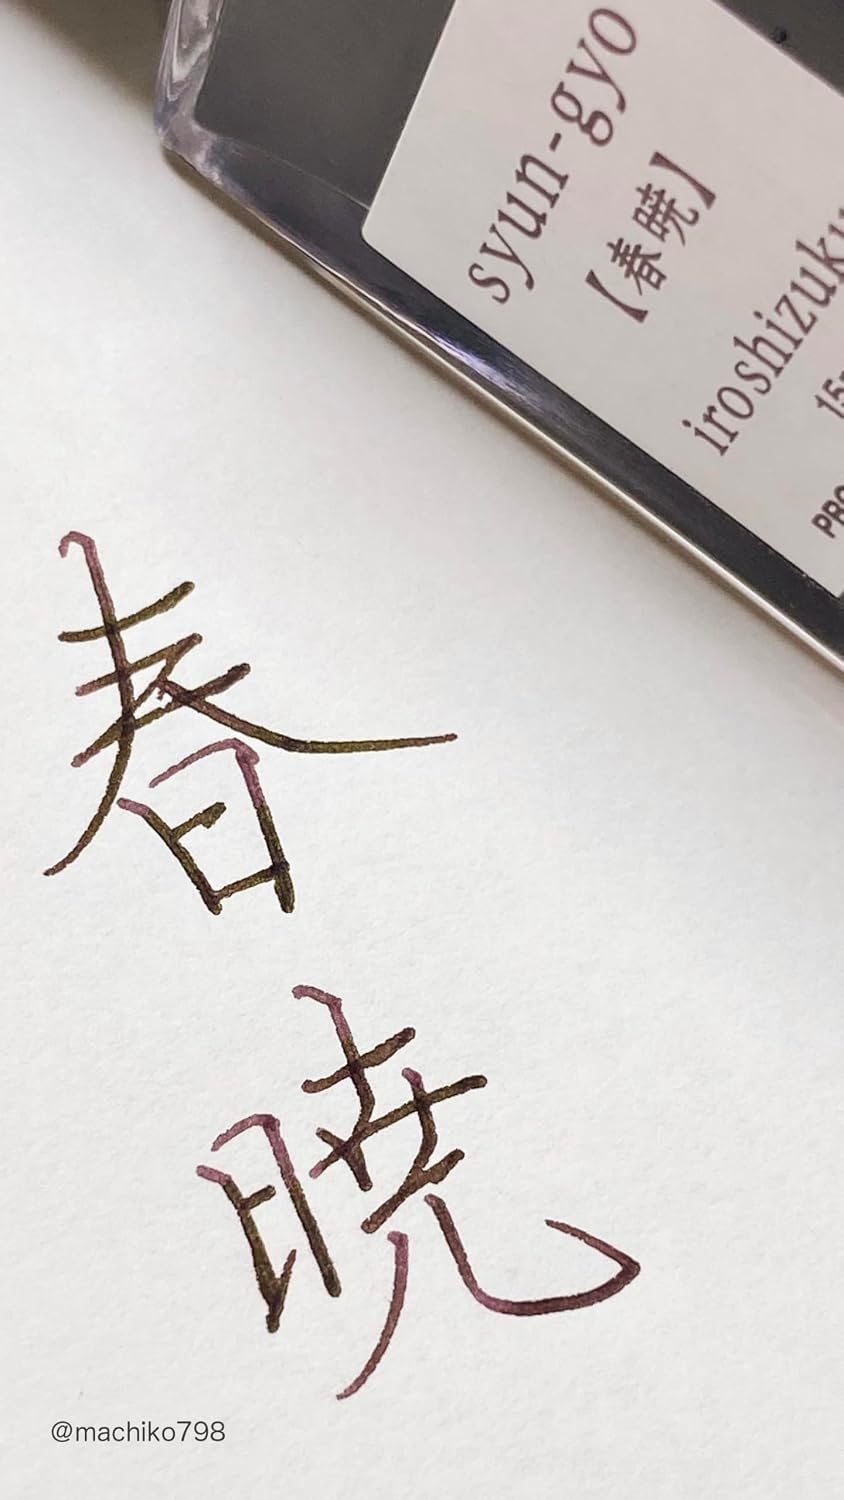 syun-gyo
【春暁】
iroshizuku
春
暁
@machiko798